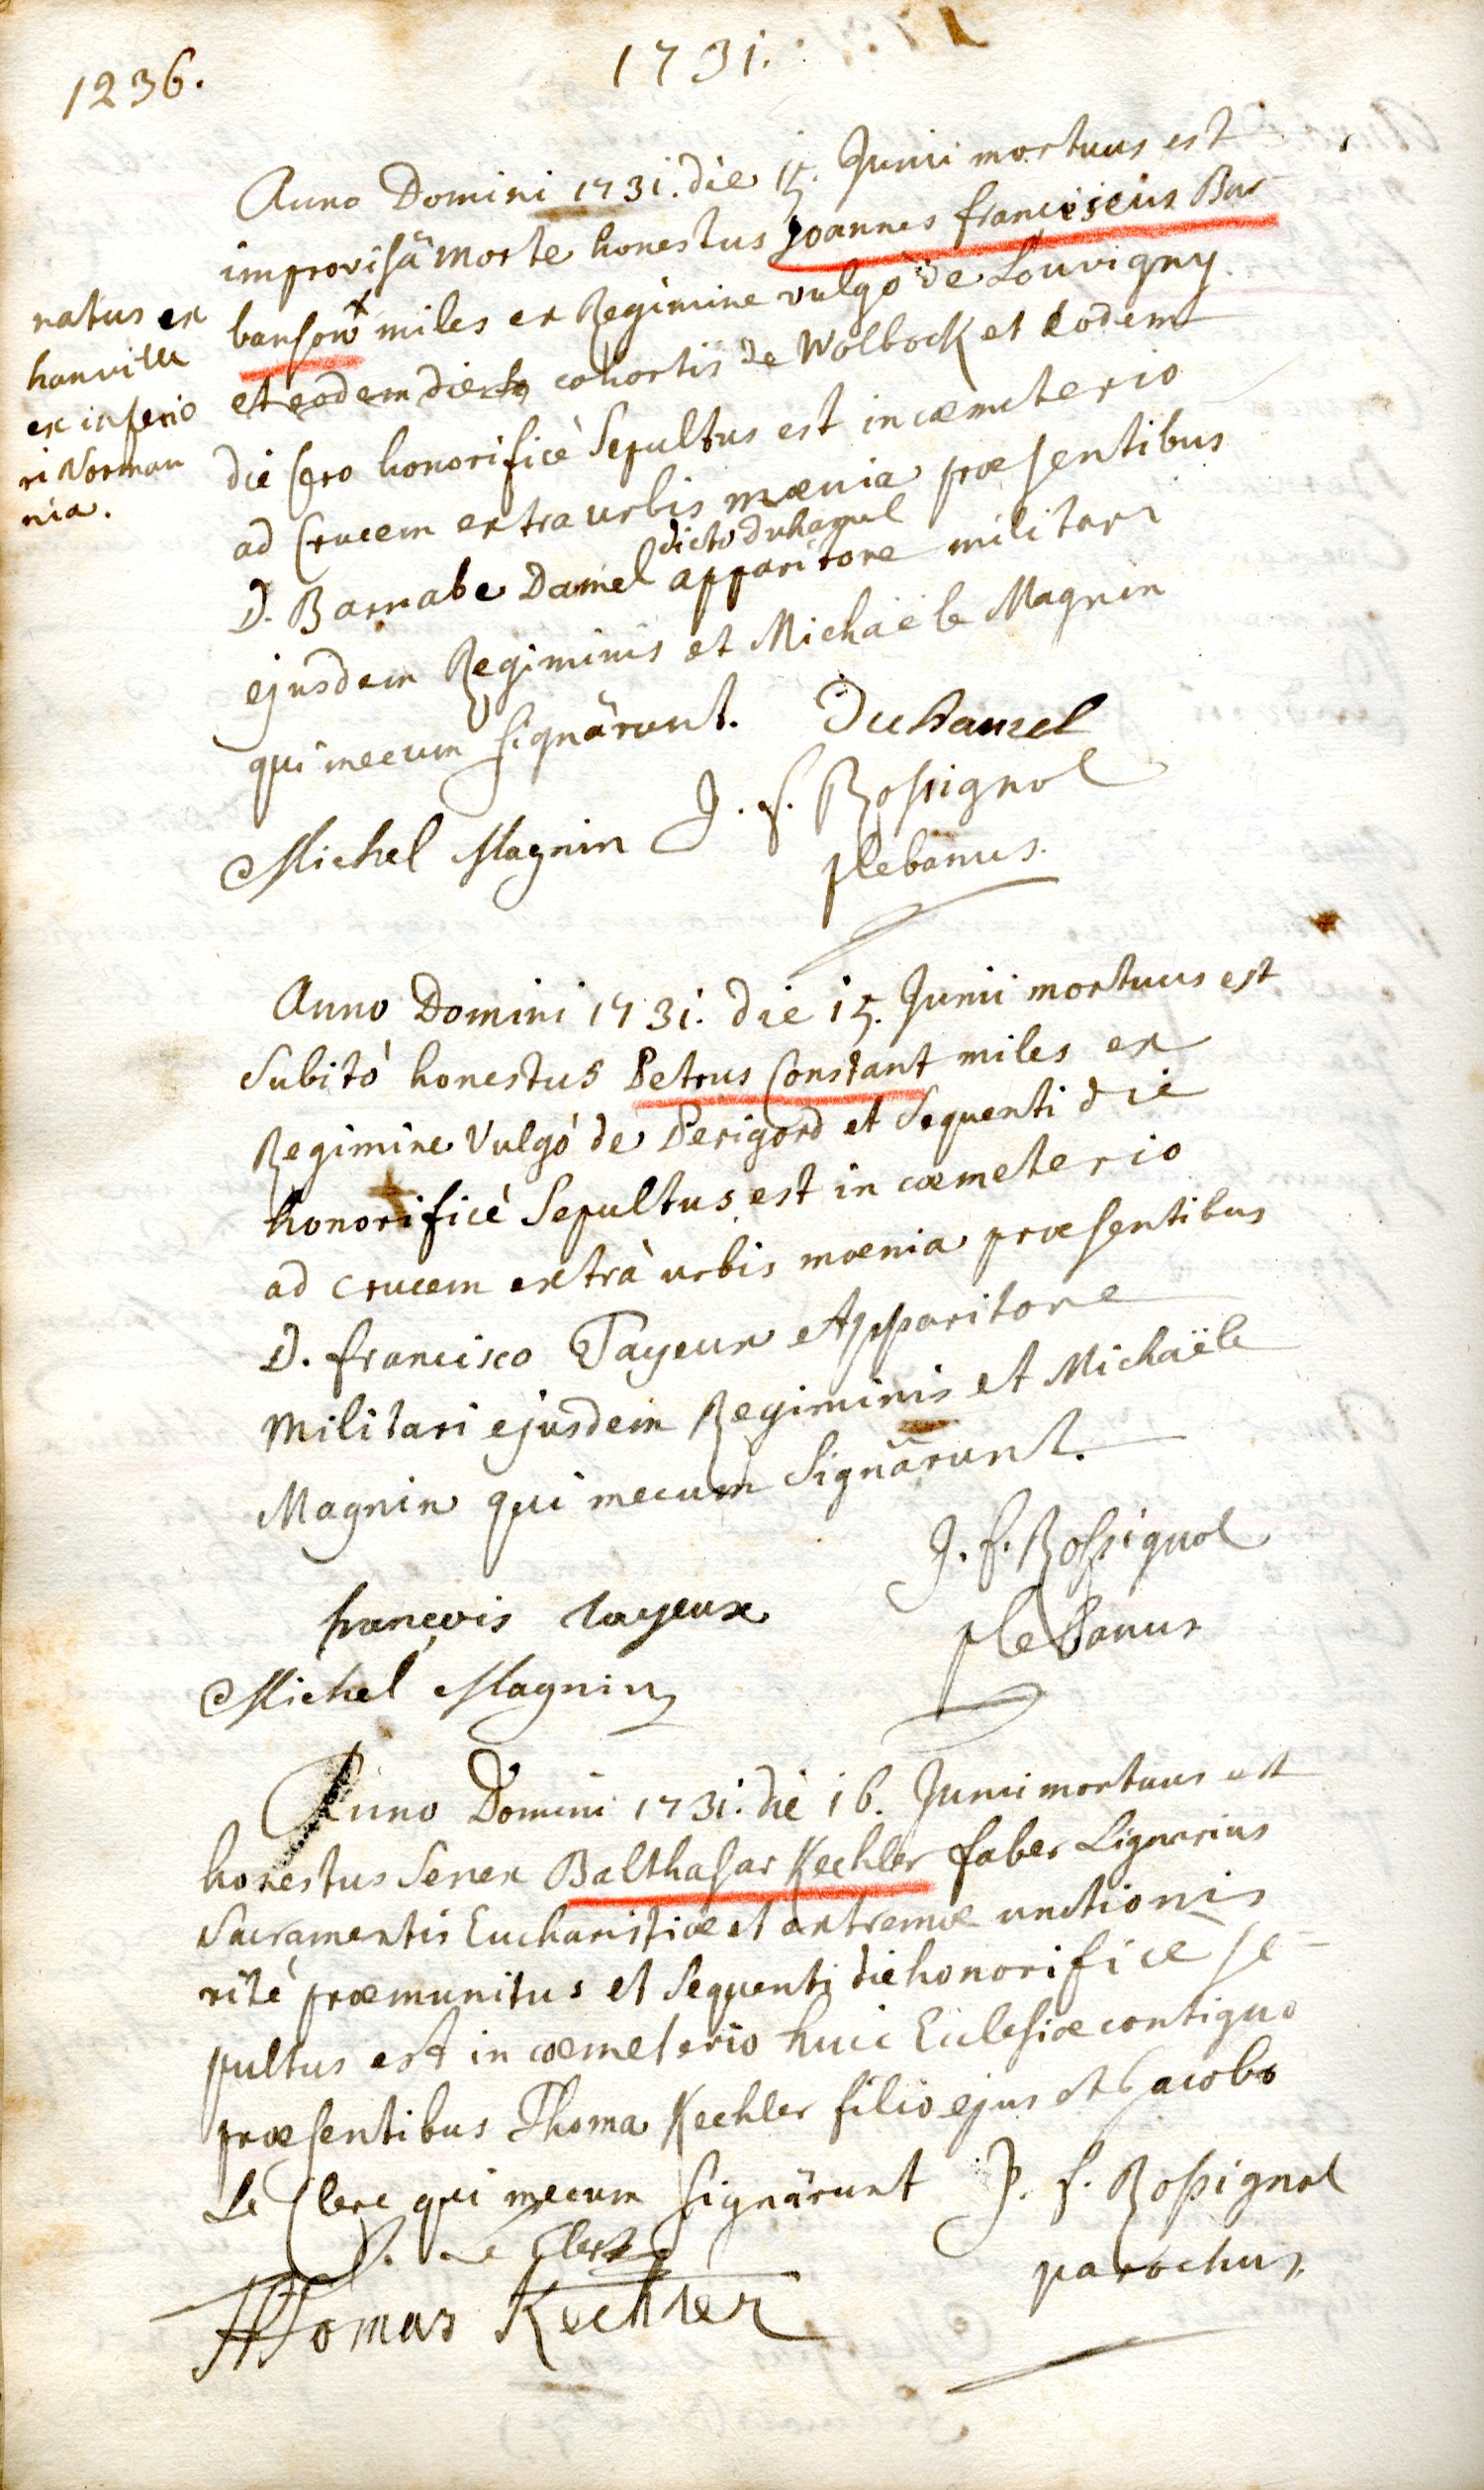 1236.
1731.
Anno Domini 1731. die 15. Junii mortuus est
improvisâ morte honestus Joannes franciscus Bar-
banson x miles ex Regimine vulgò de Louvigny
et eodem die cohortis de Wolbock et eodem
die sero honorificè Sepultus est in cœmeterio
ad Crucem extra urbis mœnia præsentibus
dicto duhamel
D. Barnabe Damel apparitore militari
ejusdem Regiminis et Michaële Magnin
qui mecum signârunt. Duhamel
Michel Magnin J. f. Rossignol
plebanus.
natus ex
hanville
ex inferio
ri Norman
nia.
Anno Domini 1731. die 15. Junii mortuus est
Subitò honestus Petrus Constant miles ex
Regimine Vulgó de Perigord et Sequenti die
honorificè Sepultus est in cœmeterio
ad crucem extrà urbis mœnia præsentibus
D. francisco Tayeux Apparitore
Militari ejusdem Regiminis et Michaële
Magnin qui mecum Signârunt.
J. f. Rossignol
plebanus
françois tayeux
Michel Magnin
Anno Domini 1731. die 16. Junii mortuus est
honestus Senex Balthasar Kechler faber Lignarius
Sacramentis Eucharistiæ et extremæ unctionis
ritè præmunitus et Sequenti die honorifice se-
pultus est in cœmeterio huic Ecclesiæ contiguo
præsentibus Thoma Kechler filio ejus et Jacobo
Le Clerc qui mecum signârunt J. f. Rossignol
parochus
J. Le Clerc
Thomas Kechler